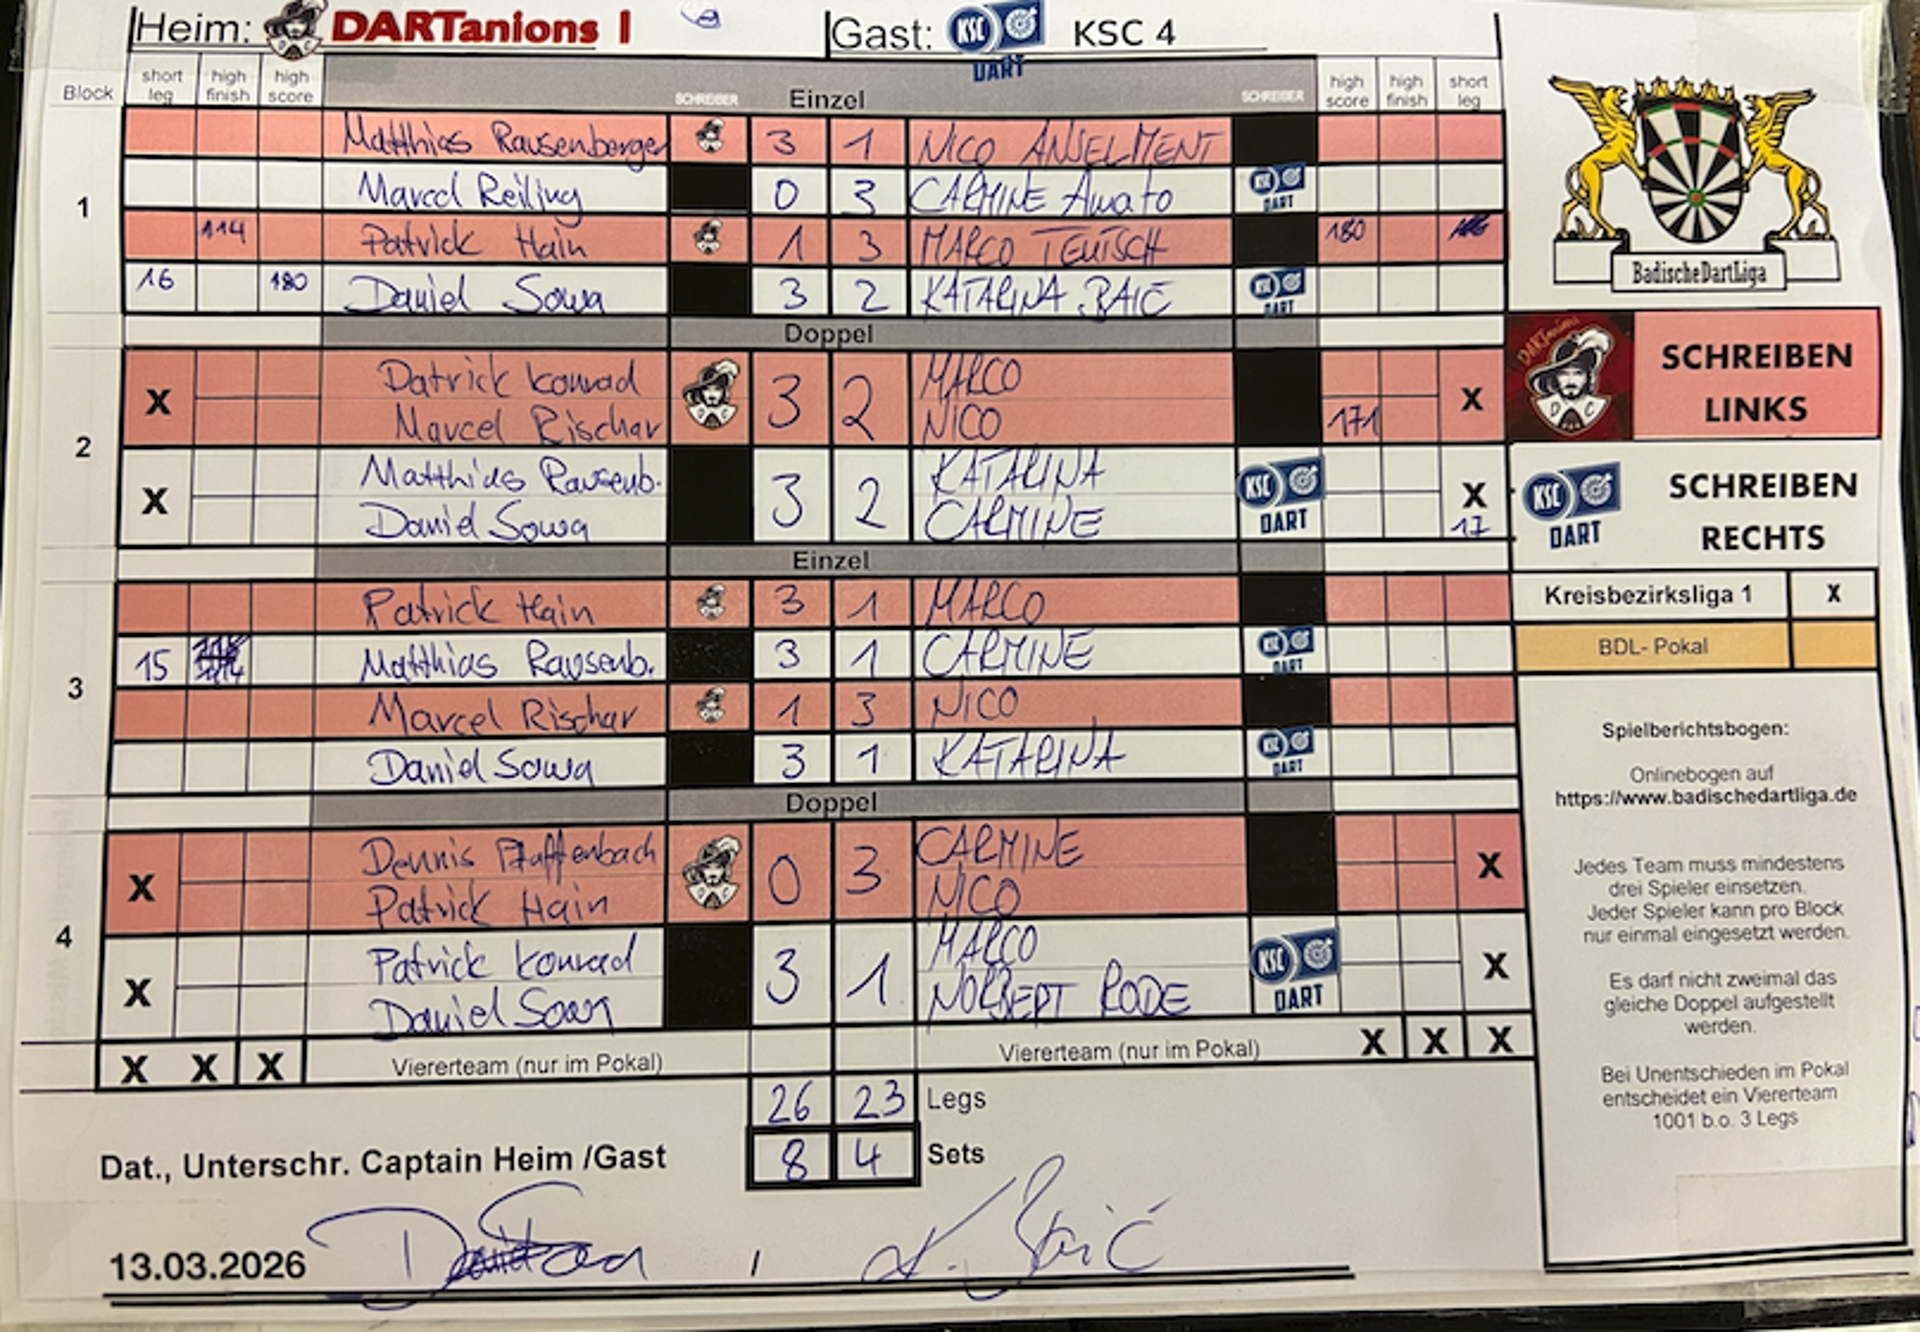 Heim: DARTanions I Gast: KSC DART KSC 4
Block short leg high finish high score SCHREIBER Einzel SCHREIBER high score high finish short leg
1
Matthias Rausenberger 3 1 NICO ANSELMENT
Marcel Reiling 0 3 CARMINE Amato KSC DART
114 Patrick Hain 1 3 MARCO TEUTSCH 180
16 180 Daniel Sowa 3 2 KATARINA BAIĆ KSC DART
Doppel
2
X Patrick Konrad 3 2 MARCO X
Marcel Rischar NICO 171
X Matthias Rausenb. 3 2 KATARINA KSC DART X
Daniel Sowa CARMINE 17
Einzel
3
Patrick Hain 3 1 MARCO
15 Matthias Rausenb. 3 1 CARMINE KSC DART
Marcel Rischar 1 3 NICO
Daniel Sowa 3 1 KATARINA KSC DART
Doppel
4
X Dennis Pfaffenbach 0 3 CARMINE X
Patrick Hain NICO
X Patrick Konrad 3 1 MARCO KSC DART X
Daniel Sowa NORBERT RODE
X X X Viererteam (nur im Pokal) Viererteam (nur im Pokal) X X X
26 23 Legs
Dat., Unterschr. Captain Heim /Gast 8 4 Sets
13.03.2026 / K. Baić
BadischeDartLiga
DARTanions
D C
SCHREIBEN
LINKS
KSC DART
SCHREIBEN
RECHTS
Kreisbezirksliga 1 X
BDL- Pokal
Spielberichtsbogen:
Onlinebogen auf
https://www.badischedartliga.de
Jedes Team muss mindestens
drei Spieler einsetzen.
Jeder Spieler kann pro Block
nur einmal eingesetzt werden.
Es darf nicht zweimal das
gleiche Doppel aufgestellt
werden.
Bei Unentschieden im Pokal
entscheidet ein Viererteam
1001 b.o. 3 Legs